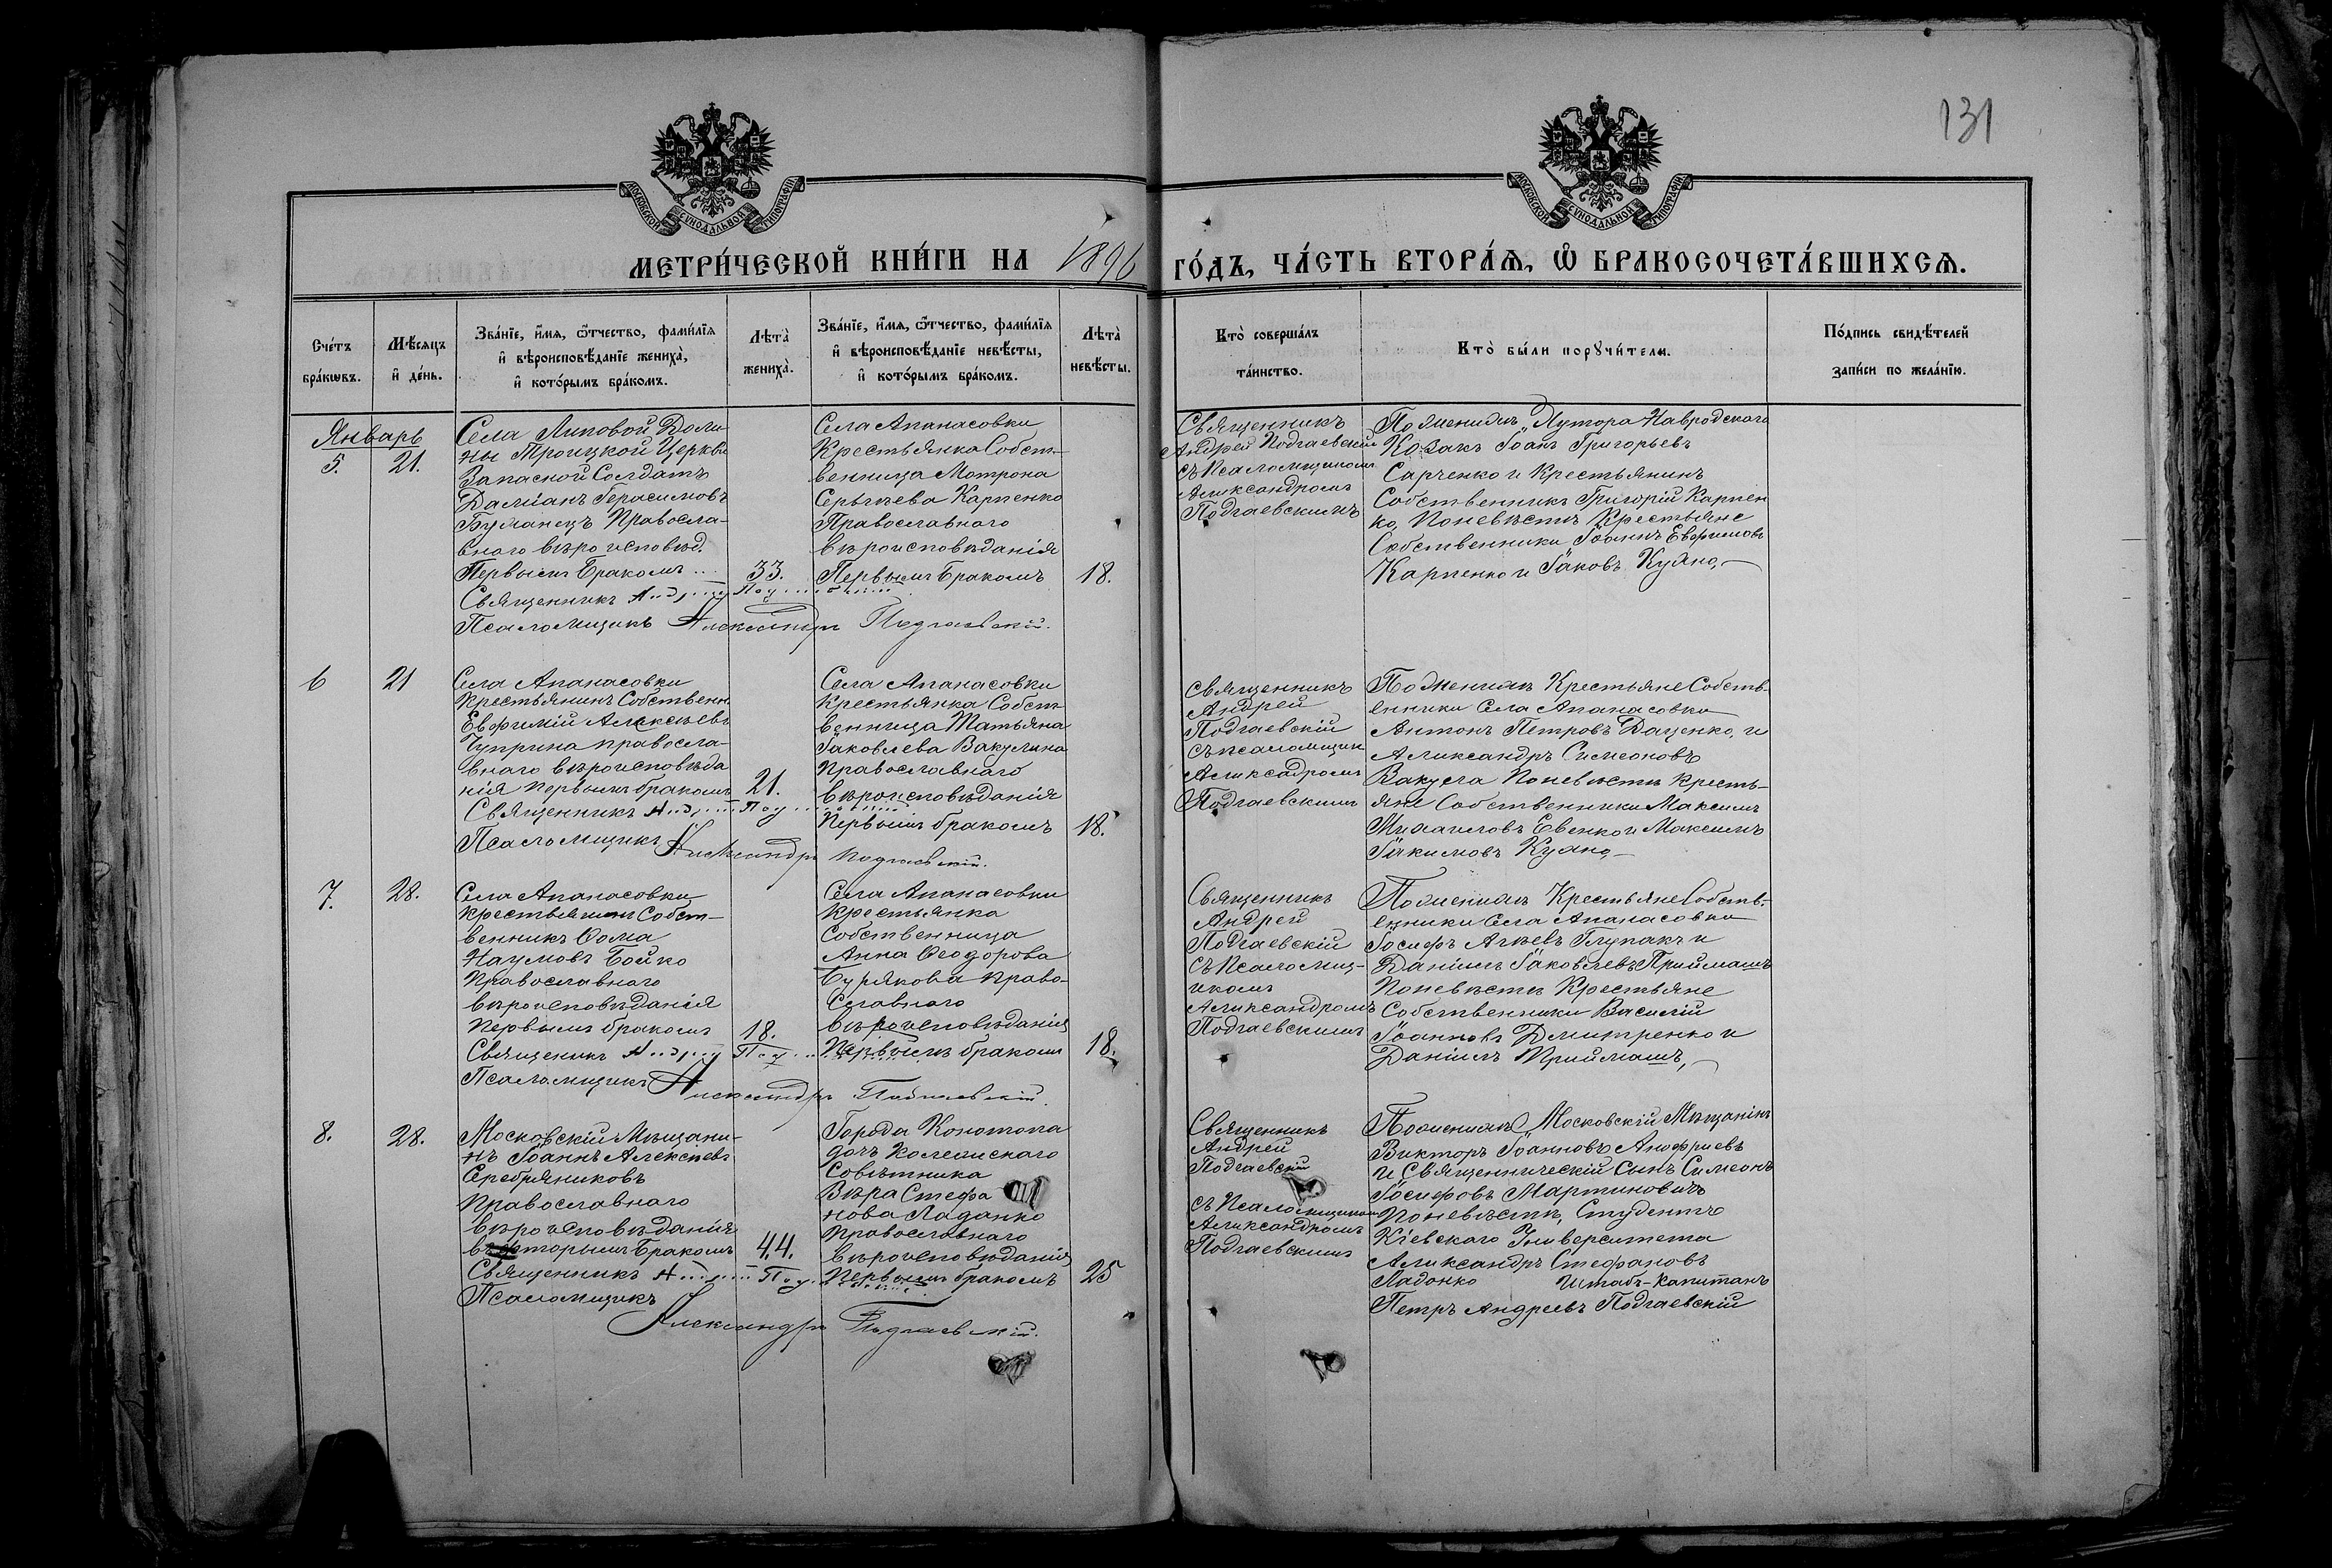 131
МОСКОВСКОЙ СѴНОДАЛЬНОЙ ТИПОГРАФІИ
МОСКОВСКОЙ СѴНОДАЛЬНОЙ ТИПОГРАФІИ
МЕТРИ́ЧЕСКОЙ КНИ́ГИ НА 1896 ГО́ДЪ, ЧА́СТЬ ВТОРА́Ѧ, Ѡ҆ БРАКОСОЧЕТА́ВШИХСѦ.
Сче́тъ
бра́кѡвъ.
Мѣ́сѧцъ
и҆ де́нь.
Зва́нїе, и҆́мѧ, ѻ҆́тчество, фами́лїѧ
и҆ вѣроисповѣ́данїе жениха̀,
и҆ кото́рымъ бра́комъ.
Лѣта̀
жениха̀.
Зва́нїе, и҆́мѧ, ѻ҆́тчество, фами́лїѧ
и҆ вѣроисповѣ́данїе невѣ́сты,
и҆ кото́рымъ бра́комъ.
Лѣта̀
невѣ́сты.
Кто̀ соверша́лъ
та́инство.
Кто̀ бы́ли порꙋчи́тели.
По́дпись свидѣ́телей
за́писи по жела́нїю.
Январь
5. 21.
Села Липовой Доли-
ны Троицкой Церкви
Запасной Солдатъ
Даміанъ Герасимовъ
Бутанецъ Правосла-
внаго вѣроисповѣд.
Первымъ Бракомъ
33.
Села Апанасовки
Крестьянка Собст-
венница Мотрона
Сергѣева Карпенко
Православнаго
вѣроисповѣданія
Первымъ Бракомъ
18.
Священникъ
Псаломщикъ Александръ Подгаевскій.
Священникъ
Андрей Подгаевскій
съ Псаломщикомъ
Александромъ
Подгаевскимъ
По женихѣ, Хутора Навродскаго
Козакъ Іоанъ Григорьевъ
Сарченко и Крестьянинъ
Собственникъ Григорій Карпен
ко, Поневѣстѣ Крестьяне
Собственники Іоаннъ Евфимовъ
Карпенко и Іаковъ Кудно,
6 21
Села Апанасовки
Крестьянинъ Собственн
Евфимій Алексѣевъ
Чуприна правосла-
внаго вѣроисповѣда
нія первымъ бракомъ
21.
Села Апанасовки
Крестьянка Собст-
венница Татьяна
Іаковлева Вакулина
православнаго
вѣроисповѣданія
Первымъ бракомъ
18.
Священникъ
Псаломщикъ Александръ Подгаевскій.
Священникъ
Андрей
Подгаевскій
съ псаломщик
Алексадромъ
Подгаевскимъ
По женихѣ Крестьяне Собств-
енники Села Апанасовки
Антонъ Петровъ Даценко, и
Александръ Симеоновъ
Вакула Поневѣстѣ Кресть-
яне Собственники Максимъ
Михаиловъ Евенко и Максимъ
Іакимовъ Кудно,
7. 28.
Села Апанасовки
крестьянинъ Собст-
венникъ Ѳома
Наумовъ Бойко
Православнаго
вѣроисповѣданія
первымъ бракомъ
18.
Села Апанасовки
Крестьянка
Собственница
Анна Ѳеодорова
Бурякова Право-
Славнаго
вѣроисповѣданія
Первымъ бракомъ
18.
Священникъ
Псаломщикъ Александръ Подгаевскій.
Священникъ
Андрей
Подгаевскій
съ Псаломщ-
икомъ
Александромъ
Подгаевскимъ
По женихѣ Крестьяне Собств-
енники Села Апанасовки
Іосифъ Глупакъ и
Даніилъ Іаковлевъ Приймашъ
Поневѣстѣ Крестьяне
Собственники Василій
Іоанновъ Дмитренко и
Даніилъ Приймашъ,
8. 28.
Московскій Мѣщани-
нъ Іоаннъ Алексѣевъ
Серебряниковъ
Православнаго
вѣроисповѣданія
вторымъ Бракомъ
44.
Города Конотопа
дочь Колежскаго
Совѣтника
Вѣра Стефа
нова Ладонко
Православнаго
вѣроисповѣданія
Первымъ бракомъ
25
Священникъ
Псаломщикъ
Александръ Подгаевскій.
Священникъ
Андрей
Подгаевскій
съ Псаломщикомъ
Александромъ
Подгаевскимъ
По женихѣ Московскій Мѣщанинъ
Викторъ Іоанновъ Аноѳріевъ
и Священническій Сынъ Симеонъ
Іосифовъ Мартиновичъ
Поневѣстѣ, Студентъ
Кіевскаго Университета
Александръ Стефановъ
Ладонко Штабъ-Капитанъ
Петръ Андреевъ Подгаевскій